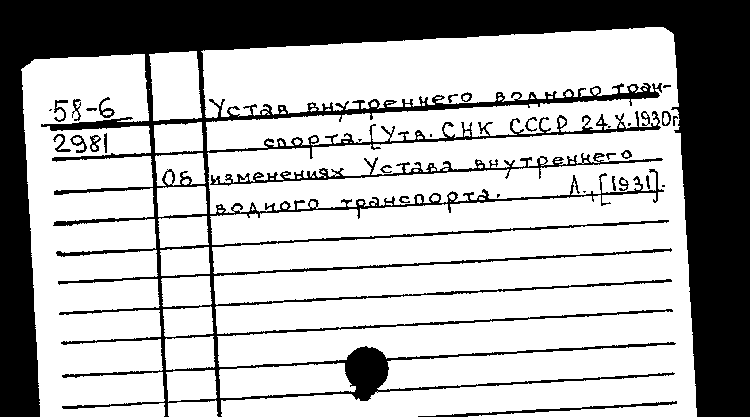 58-6 Устав внутреннего водного тран-
2981 спорта. [Утв. СНК СССР 24.X.1930г]
Об изменениях Устава внутреннего
водного транспорта. Л., [1931].